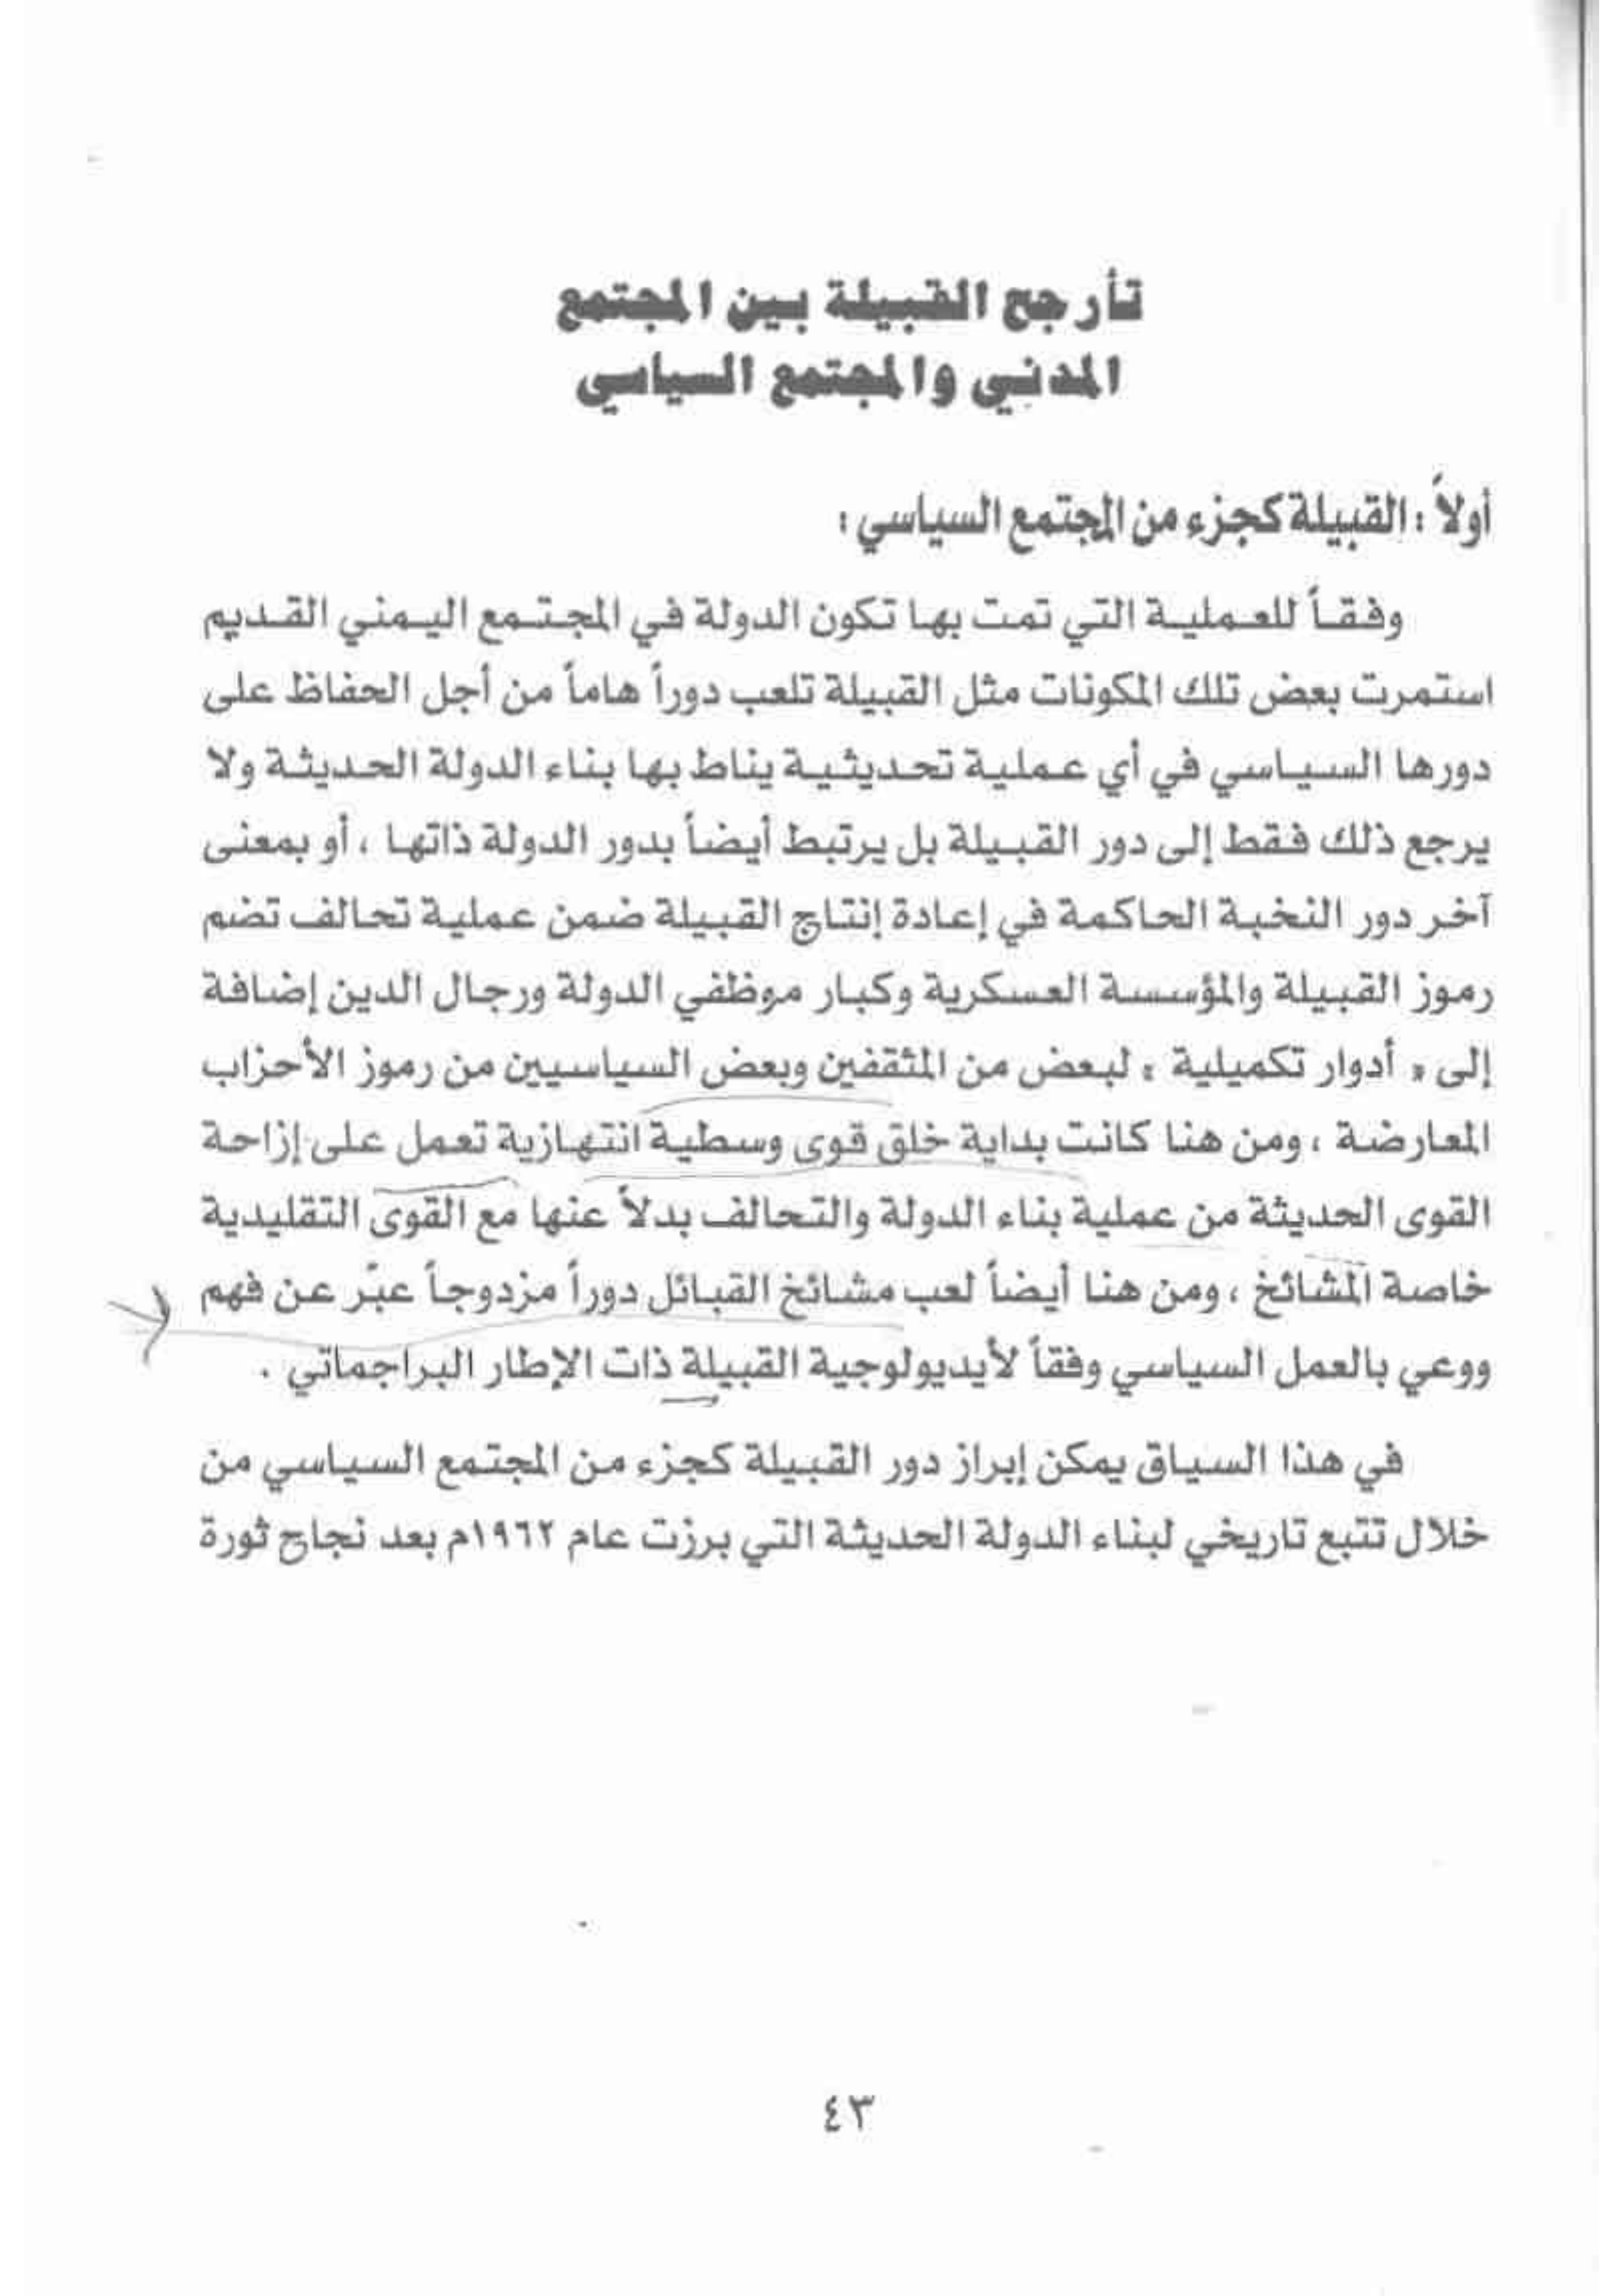 تأرجح القبيلة بين المجتمع
المدني والمجتمع السياسي
أولاً : القبيلة كجزء من المجتمع السياسي :
وفقاً للعملية التي تمت بها تكون الدولة في المجتمع اليمني القديم
استمرت بعض تلك المكونات مثل القبيلة تلعب دوراً هاماً من أجل الحفاظ على
دورها السياسي في أي عملية تحديثية يناط بها بناء الدولة الحديثة ولا
يرجع ذلك فقط إلى دور القبيلة بل يرتبط أيضاً بدور الدولة ذاتها ، أو بمعنى
آخر دور النخبة الحاكمة في إعادة إنتاج القبيلة ضمن عملية تحالف تضم
رموز القبيلة والمؤسسة العسكرية وكبار موظفي الدولة ورجال الدين إضافة
إلى « أدوار تكميلية » لبعض من المثقفين وبعض السياسيين من رموز الأحزاب
المعارضة ، ومن هنا كانت بداية خلق قوى وسطية انتهازية تعمل على إزاحة
القوى الحديثة من عملية بناء الدولة والتحالف بدلاً عنها مع القوى التقليدية
خاصة المشائخ ، ومن هنا أيضاً لعب مشائخ القبائل دوراً مزدوجاً عبّر عن فهم
ووعي بالعمل السياسي وفقاً لأيديولوجية القبيلة ذات الإطار البراجماتي .
في هذا السياق يمكن إبراز دور القبيلة كجزء من المجتمع السياسي من
خلال تتبع تاريخي لبناء الدولة الحديثة التي برزت عام ١٩٦٢م بعد نجاح ثورة
٤٣